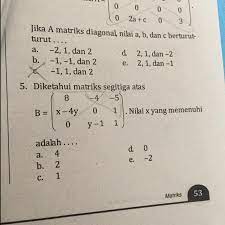 0 0 0
0 2a+c 0 3
Jika A matriks diagonal, nilai a, b, dan c berturut-
turut . . . .
a. -2, 1, dan 2 d. 2, 1, dan -2
b. -1, -1, dan 2 e. 2, 1, dan -1
-1, 1, dan 2
5. Diketahui matriks segitiga atas
8 -4 -5
B = x-4y 0 1 . Nilai x yang memenuhi
0 y-1 1
adalah . . . .
a. 4 d. 0
b. 2 e. -2
c. 1
Matriks 53